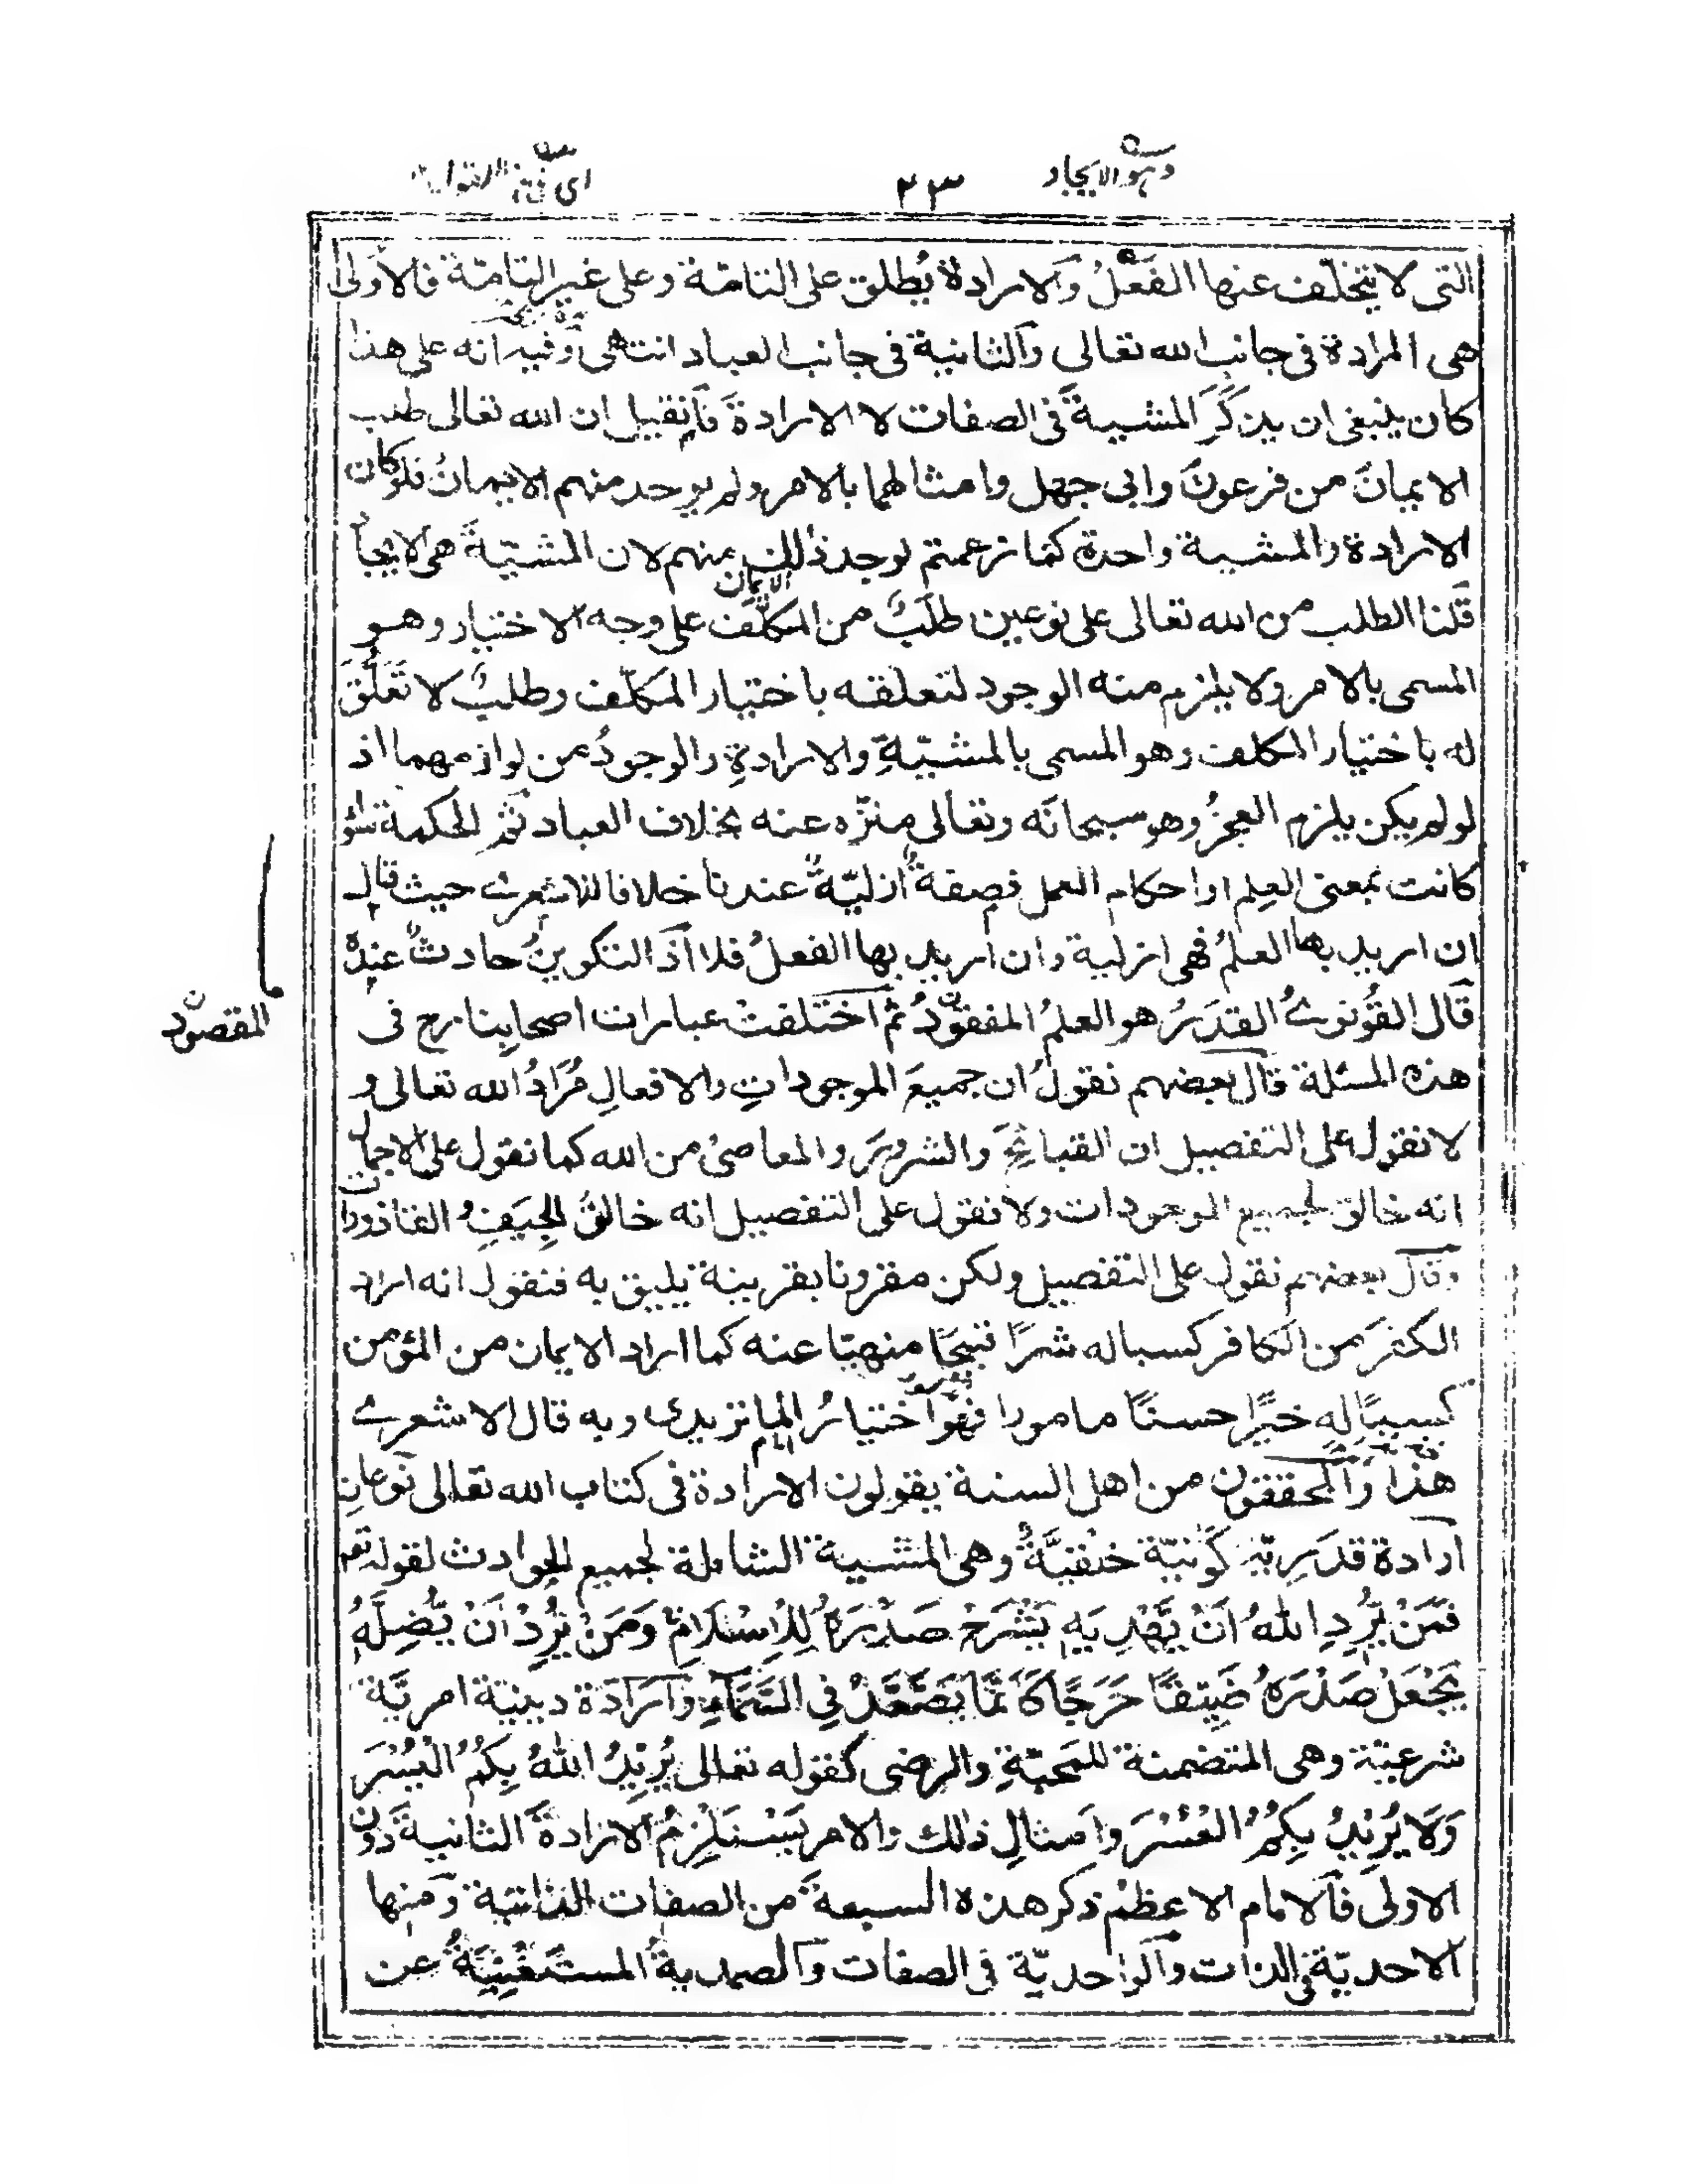 وهو الايجاد
٢٣
التى لا يتخلّف عنها الفعلُ والارادة يُطلق على التامّة وعلى غير التامّة فالأولى
هى المرادة فى جانب الله تعالى والثانية فى جانب العباد انتهى وفيه انه على هذا
كان ينبغى ان يذكرَ المشيةَ فى الصفات لا الارادةَ فان قيل ان الله تعالى طلب
الايمانَ من فرعون وابى جهل وامثالهما بالامر ولم يوجد منهم الايمانُ فلو كان
الارادة والمشية واحدة كما زعمتم لوجد ذلك منهم لان المشيّةَ هى الايجاد
الايمان
قلنا الطلب من الله تعالى على نوعين طلبٌ من المكلّف على وجه الاختيار وهو
المسمى بالامر ولا يلزم منه الوجود لتعلقه باختيار المكلّف وطلبٌ لا تَعَلُّقَ
له باختيار المكلف وهو المسمى بالمشيّةِ والارادةِ والوجودُ من لوازمهما اذ
لو لم يكن يلزم العجزُ وهو سبحانَه وتعالى منزّه عنه بخلاف العباد ثم الحكمة سواء
كانت بمعنى العِلم او احكام العمل فصفةٌ ازليّةٌ عندنا خلافا للاشعرى حيث قال
ان اريد بها العلمُ فهى ازلية وان اريد بها الفعلُ فلا اذ التكوينُ حادثٌ عنده
قال القُونوىُ القدَرُ هو العلمُ المفقودُ ثم اختلفتْ عبارات اصحابنا رح فى
المقصود
هذه المسئلة قال بعضهم نقولُ ان جميعَ الموجوداتِ والافعالِ مُرَادُ الله تعالى و
لا نقول على التفصيل ان القبائحَ والشرورَ والمعاصىَ من الله كما نقول على الاجمال
انه خالق لجميع الموجودات ولا نقول على التفصيل انه خالقُ الجِيَفِ والقاذورات
وقال بعضهم نقول على التفصيل ولكن مقرونا بقرينة يليق به فنقول انه اراد
الكفرَ من الكافر كسبا له شرًا قبيحًا منهيّا عنه كما اراد الايمان من المؤمن
كسبًا له خيرًا حسنًا مامورا فهو اختيارُ الماتريدى وبه قال الاشعرى
هذا والمحققون من اهل السنة يقولون الارادة فى كتاب الله تعالى نوعان
ارادة قدَرِيّة كونيّة خلقيَّةٌ وهى المشية الشاملة لجميع الحوادث لقوله تعم
فَمَنْ يُّرِدِ اللهُ اَنْ يَّهْدِيَهٖ يَشْرَحْ صَدْرَهٗ لِلْاِسْلَامِ وَمَنْ يُّرِدْ اَنْ يُّضِلَّهٗ
يَجْعَلْ صَدْرَهٗ ضَيِّقًا حَرَجًا كَاَنَّمَا يَصَّعَّدُ فِي السَّمَآءِ وارادة دينية امريّة
شرعيّة وهى المتضمنة للمَحبّةِ والرضى كقوله تعالى يُرِيْدُ اللّٰهُ بِكُمُ الْيُسْرَ
وَلَا يُرِيْدُ بِكُمُ الْعُسْرَ وامثالِ ذلك والامر يَسْتَلْزِمُ الارادةَ الثانيةَ دون
الاولى فالامام الاعظم ذكر هذه السبعةَ من الصفات الذاتية ومنها
الاحديّة فى الذات والواحديّة فى الصفات والصمديةُ المستغنيةُ عن